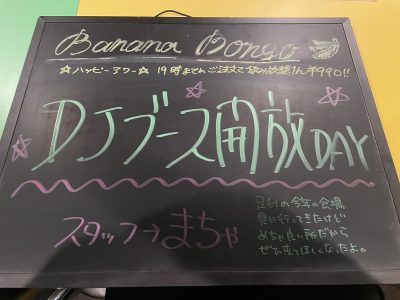 Banana Bongo
☆ハッピーアワー☆ 19時までにご注文で飲み放題1h ¥990!!
DJブース開放DAY
スタッフ→まちゃ
足利の今年の会場
見に行ってきたけど
めちゃ良い所だから
ぜひ来てほしくなったよ。